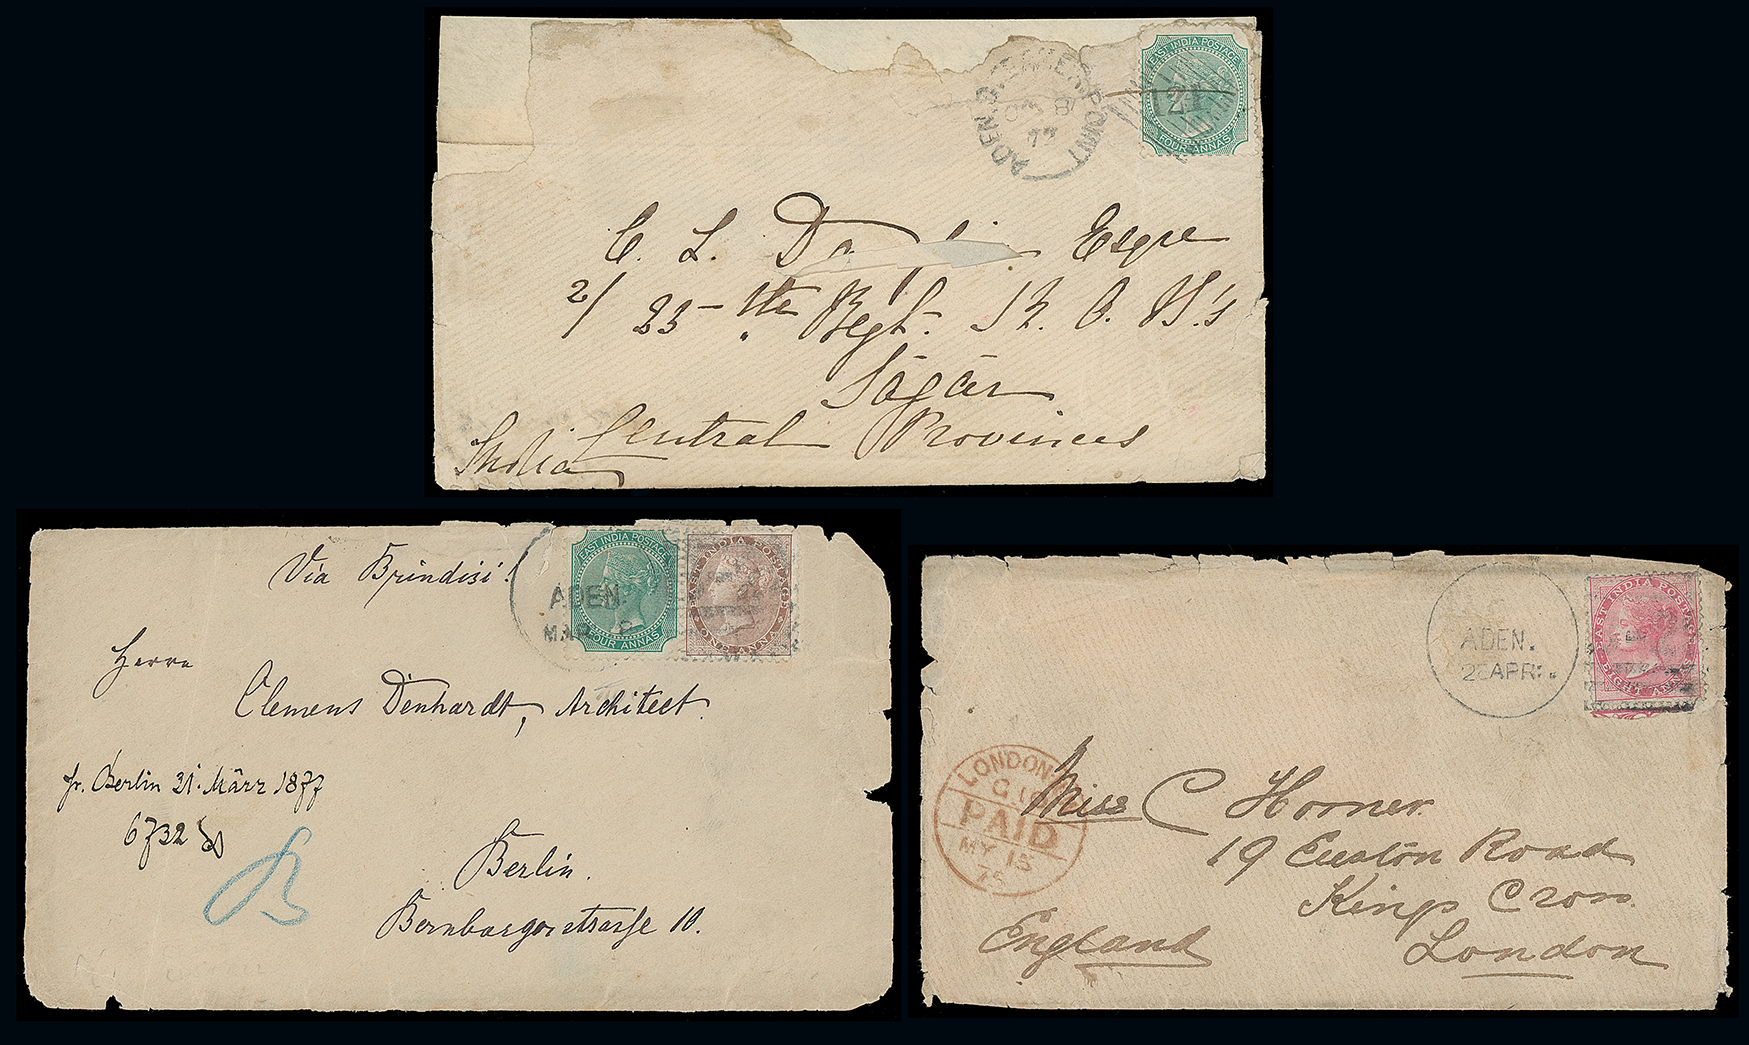 ADEN. STEAMER POINT
77
EAST INDIA POSTAGE
124
FOUR ANNAS
C. L. Esqre
2/ 23 - Regt.
Sāgār
Central Provinces
India
Via Brindisi!
EAST INDIA POSTAGE
FOUR ANNAS
EAST INDIA POSTAGE
ONE ANNA
ADEN.
MAR
Herrn
Clemens Denhardt, Architect
fr. Berlin 21. März 1877
6732
B
Berlin.
Bernburgerstrasse 10.
EAST INDIA POSTAGE
EIGHT ANNAS
ADEN.
APR.
LONDON
PAID
MY 15
75
Miss C Horner
19 Euston Road
Kings Cross
London
England